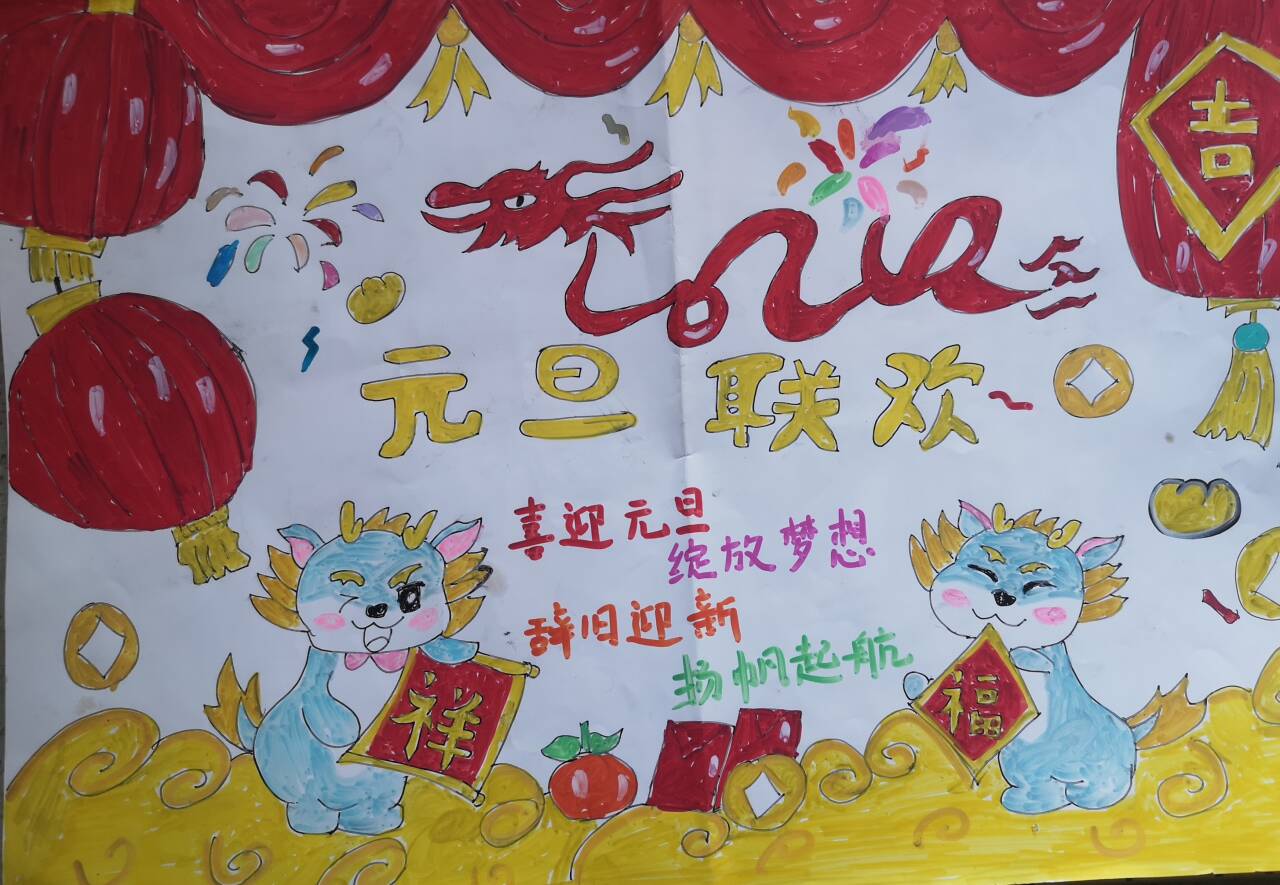 吉
元旦联欢
喜迎元旦
绽放梦想
辞旧迎新
扬帆起航
祥
福